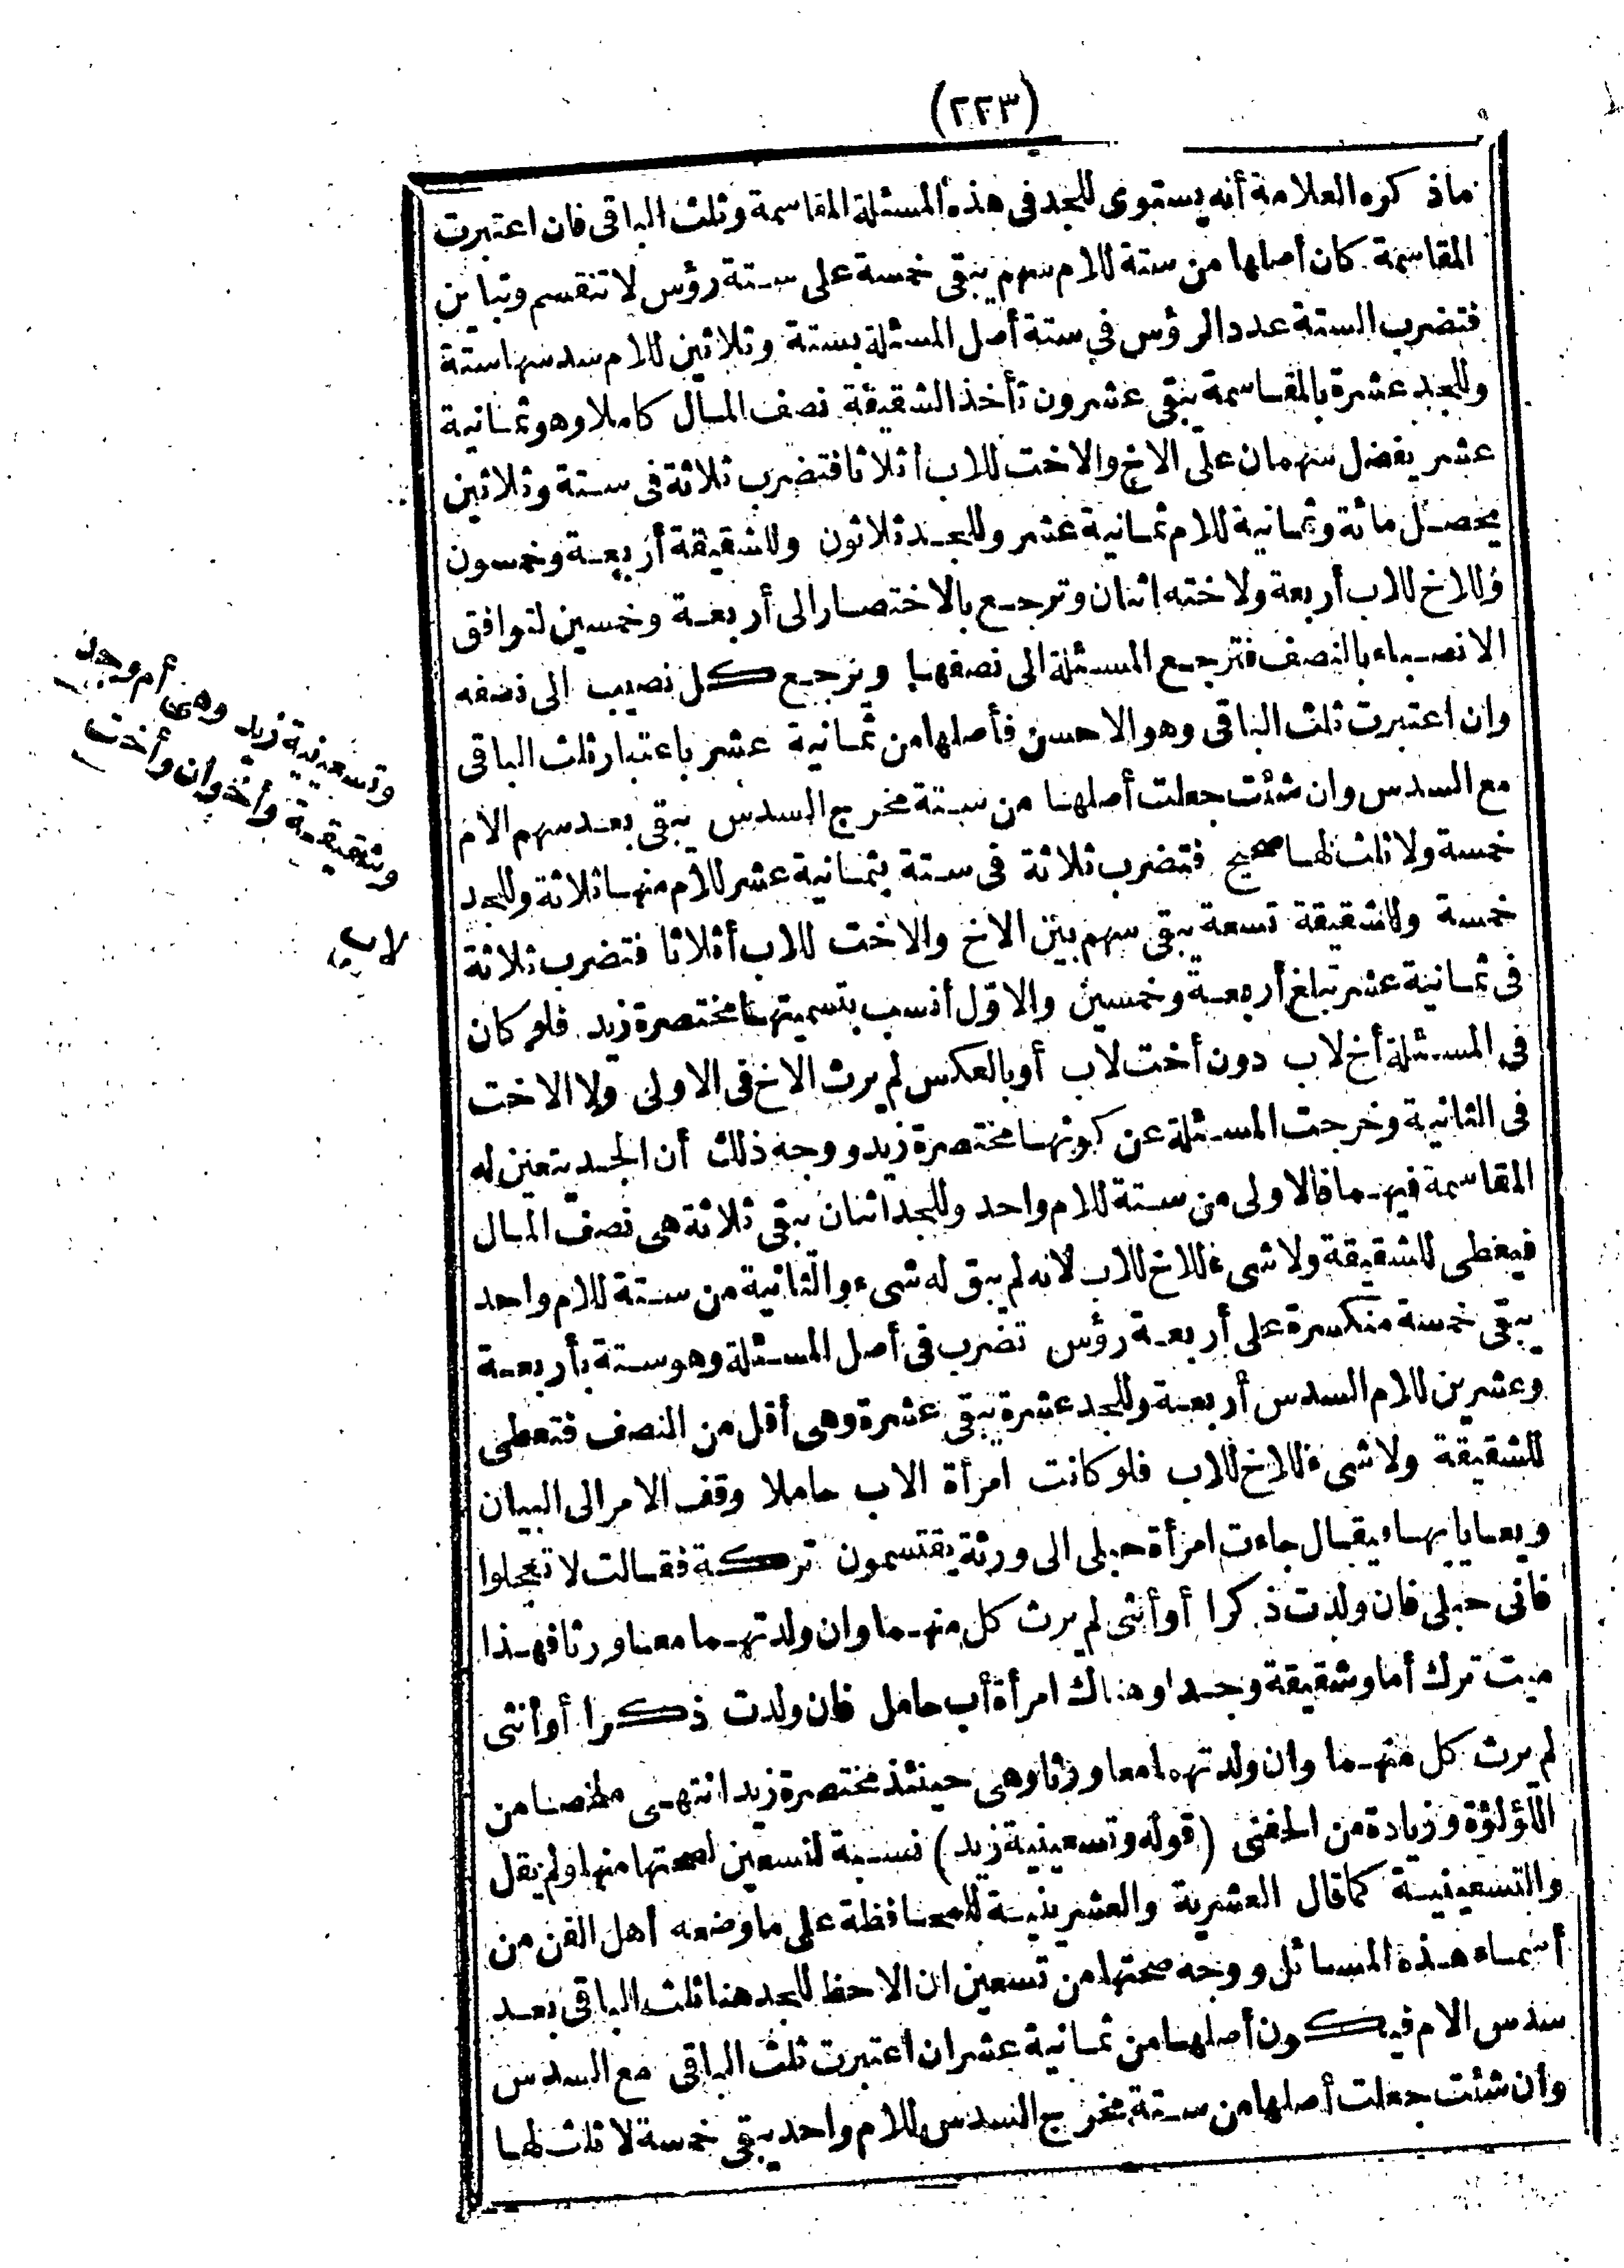 (٢٢٣)
ماذكره العلامة أنه يستوى للجد فى هذه المسئلة المقاسمة وثلث الباقى فان اعتبرت
المقاسمة كان أصلها من ستة للام سهم يبقى خمسة على ستة رؤس لا تنقسم وتباين
فتضرب الستة عدد الرؤس فى ستة أصل المسئلة بستة وثلاثين للام سدسها ستة
وللجد عشرة بالمقاسمة يبقى عشرون تأخذ الشقيقة نصف المال كاملا وهو ثمانية
عشر يفضل سهمان على الاخ والاخت للاب أثلاثا فتضرب ثلاثة فى ستة وثلاثين
يحصل مائة وثمانية للام ثمانية عشر وللجد ثلاثون وللشقيقة أربعة وخمسون
وللاخ للاب أربعة ولاخته اثنان وترجع بالاختصار الى أربعة وخمسين لتوافق
الانصباء بالنصف فترجع المسئلة الى نصفها ويرجع كل نصيب الى نصفه
وان اعتبرت ثلث الباقى وهو الاحسن فأصلها من ثمانية عشر باعتبار ثلث الباقى
مع السدس وان شئت جعلت أصلها من ستة مخرج السدس يبقى بعد سهم الام
خمسة ولا ثلث لها صحيح فتضرب ثلاثة فى ستة بثمانية عشر للام منها ثلاثة وللجد
خمسة وللشقيقة تسعة يبقى سهم بين الاخ والاخت للاب أثلاثا فتضرب ثلاثة
فى ثمانية عشر تبلغ أربعة وخمسين والاول أنسب بتسميتها مختصرة زيد فلو كان
فى المسئلة أخ لاب دون أخت لاب أو بالعكس لم يرث الاخ فى الاولى ولا الاخت
فى الثانية وخرجت المسئلة عن كونها مختصرة زيد ووجه ذلك أن الجد يتعين له
المقاسمة فيهما فالاولى من ستة للام واحد وللجد اثنان يبقى ثلاثة هى نصف المال
فيعطى للشقيقة ولا شىء للاخ للاب لانه لم يبق له شىء والثانية من ستة للام واحد
يبقى خمسة منكسرة على أربعة رؤس تضرب فى أصل المسئلة وهو ستة بأربعة
وعشرين للام السدس أربعة وللجد عشرة يبقى عشرة وهى أقل من النصف فتعطى
للشقيقة ولا شىء للاخ للاب فلو كانت امرأة الاب حاملا وقف الامر الى البيان
ويعايا بها فيقال جاءت امرأة حبلى الى ورثة يقتسمون تركة فقالت لا تعجلوا
فانى حبلى فان ولدت ذكرا أو أنثى لم يرث كل منهما وان ولدتهما معا ورثا فهذا
ميت ترك أما وشقيقة وجدا وهناك امرأة أب حامل فان ولدت ذكرا أو أنثى
لم يرث كل منهما وان ولدتهما معا ورثا وهى حينئذ مختصرة زيد انتهى ملخصا من
اللؤلؤة وزيادة من الحفنى (قوله وتسعينية زيد) نسبة لتسعين لصحتها منها ولم يقل
والتسعينية كما قال العشرية والعشرينية للمحافظة على ما وضعه أهل الفن من
أسماء هذه المسائل ووجه صحتها من تسعين ان الاحظ للجد هنا ثلث الباقى بعد
سدس الام فيكون أصلها من ثمانية عشر ان اعتبرت ثلث الباقى مع السدس
وان شئت جعلت أصلها من ستة مخرج السدس للام واحد يبقى خمسة لا ثلث لها
وتسعينية زيد وهى أم وجد
وشقيقة وأخوان وأخت
لاب